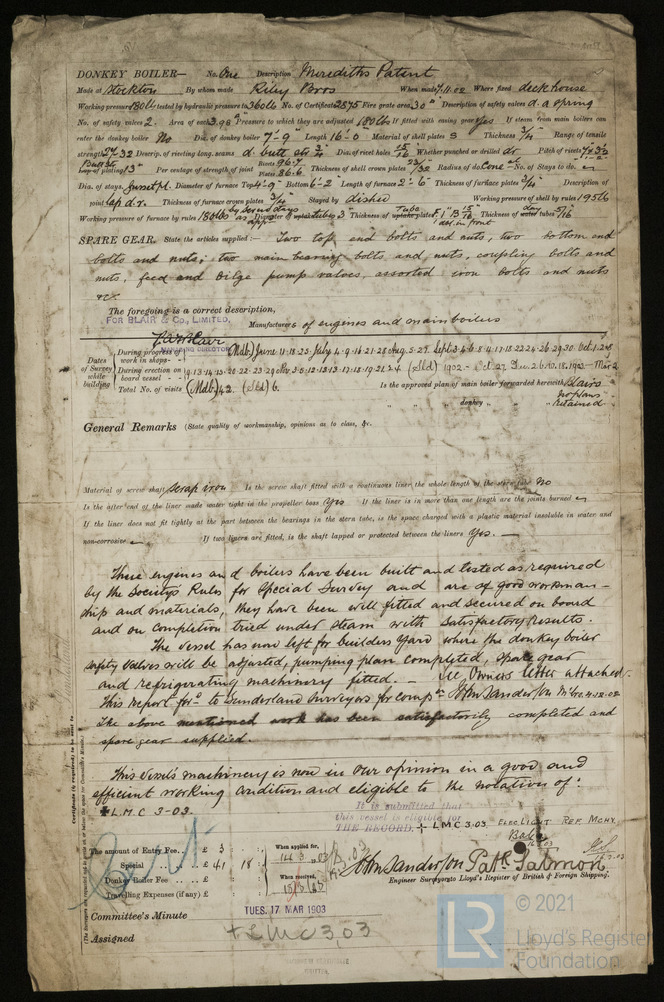 DONKEY BOILER— No. One Description Merediths Patent
Made at Stockton By whom made Riley Bros When made 7.11.02 Where fixed deck house
Working pressure 180 lb tested by hydraulic pressure to 360 lb No. of Certificate 2875 Fire grate area 30 Description of safety valves d. a spring
No. of safety valves 2. Area of each 3.98 Pressure to which they are adjusted 180 lbs If fitted with easing gear Yes If steam from main boilers can
enter the donkey boiler No Dia. of donkey boiler 7'-9" Length 16'-0" Material of shell plates S Thickness 3/4" Range of tensile
strength 27-32 Descrip. of riveting long. seams d. butt str Dia. of rivet holes 15/16 Whether punched or drilled dr. Pitch of rivets
Lap of plating 13" Per centage of strength of joint Rivets 96.7 Plates 86.6 Thickness of shell crown plates 23/32 Radius of do. No. of Stays to do.
Dia. of stays. Diameter of furnace Top 4'-9" Bottom 6'-2 Length of furnace 2'-6" Thickness of furnace plates 3/4" Description of
joint lap d.r. Thickness of furnace crown plates 3/4" Stayed by dished Working pressure of shell by rules 195 lb
Working pressure of furnace by rules 180 lbs Diameter of tubes 3 Thickness of Tube plates Thickness of tubes 5/16
SPARE GEAR. State the articles supplied:— Two top end bolts and nuts, two bottom end
bolts and nuts; two main bearing bolts and nuts, coupling bolts and
nuts, feed and bilge pump valves, assorted iron bolts and nuts
&c.
The foregoing is a correct description,
FOR BLAIR & Co., LIMITED,
Manufacturers of engines and main boilers
MANAGING DIRECTOR
Dates of Survey while building
During progress of work in shops - - (Mdb.) June 11.18.25. July 4.9.16.21.28 Aug. 5.27. Sept. 3.4.6.8.11.17.18.22.24.26.29.30 Oct. 1.
During erection on board vessel - - (Sld) 1902 - Oct 27, Dec. 2.6.10.18. 1903 - Mar 2
Total No. of visits (Mdb.) 42. (Sld) 6.
Is the approved plan of main boiler forwarded herewith Blairs
" " " donkey " " " Retained
General Remarks (State quality of workmanship, opinions as to class, &c.
Material of screw shaft Scrap iron Is the screw shaft fitted with a continuous liner the whole length of the stern tube No
Is the after end of the liner made water tight in the propeller boss Yes If the liner is in more than one length are the joints burned
If the liner does not fit tightly at the part between the bearings in the stern tube, is the space charged with a plastic material insoluble in water and
non-corrosive If two liners are fitted, is the shaft lapped or protected between the liners Yes.
These engines and boilers have been built and tested as required
by the Society's Rules for Special Survey and are of good workman-
ship and materials, they have been well fitted and secured on board
and on completion tried under steam with satisfactory results.
The vessel has now left for builders yard where the donkey boiler
safety valves will be adjusted, pumping plan completed, spare gear
and refrigerating machinery fitted. - See Owners letter attached.
This report for'd to Sunderland Surveyors for comp'n John Sanderson
The above mentioned work has been satisfactorily completed and
spare gear supplied.
This vessel's machinery is now in our opinion in a good and
efficient working condition and eligible to the notation of
+ L.M.C 3-03.
It is submitted that
this vessel is eligible for
THE RECORD. + LMC 3.03. ELEC LIGHT REF. MCHY.
The amount of Entry Fee. . £ 3
Special . . £ 41 18
Donkey Boiler Fee . . . £
Travelling Expenses (if any) £
When applied for,
14.3.03
When received,
John Sanderson Patk Salmon
Engineer Surveyors to Lloyd's Register of British & Foreign Shipping.
Committee's Minute
TUES. 17 MAR 1903
Assigned + LMC 3,03
Certificate (if required) to be sent to
© 2021
LR
Lloyd's Register
Foundation